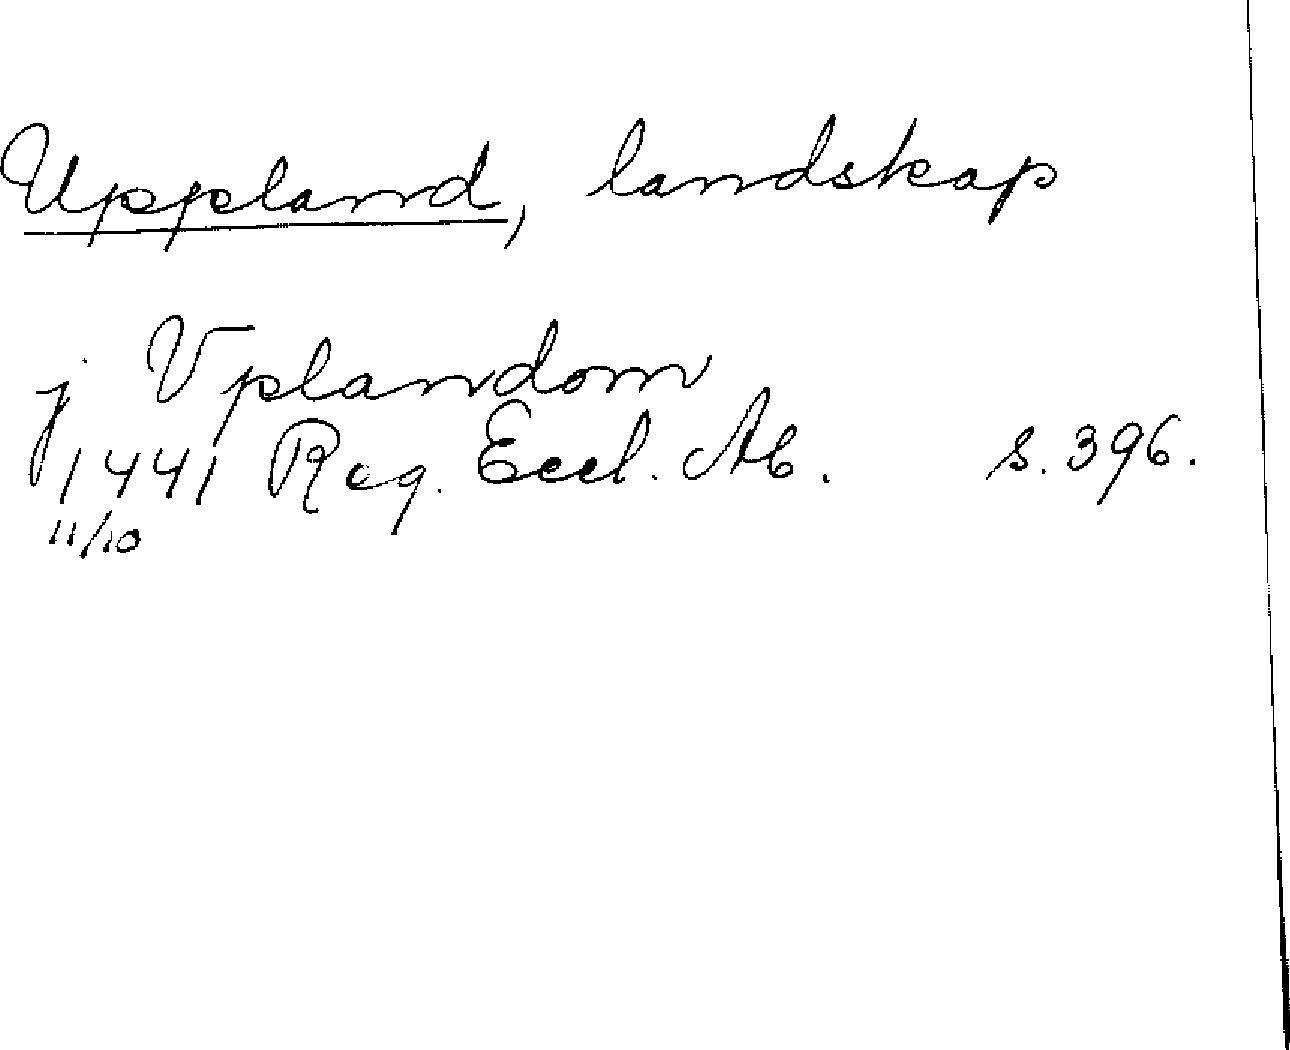 Uppland, landskap
j Vplandom
1441 Reg. Eccl. Ab. s. 396.
11/10